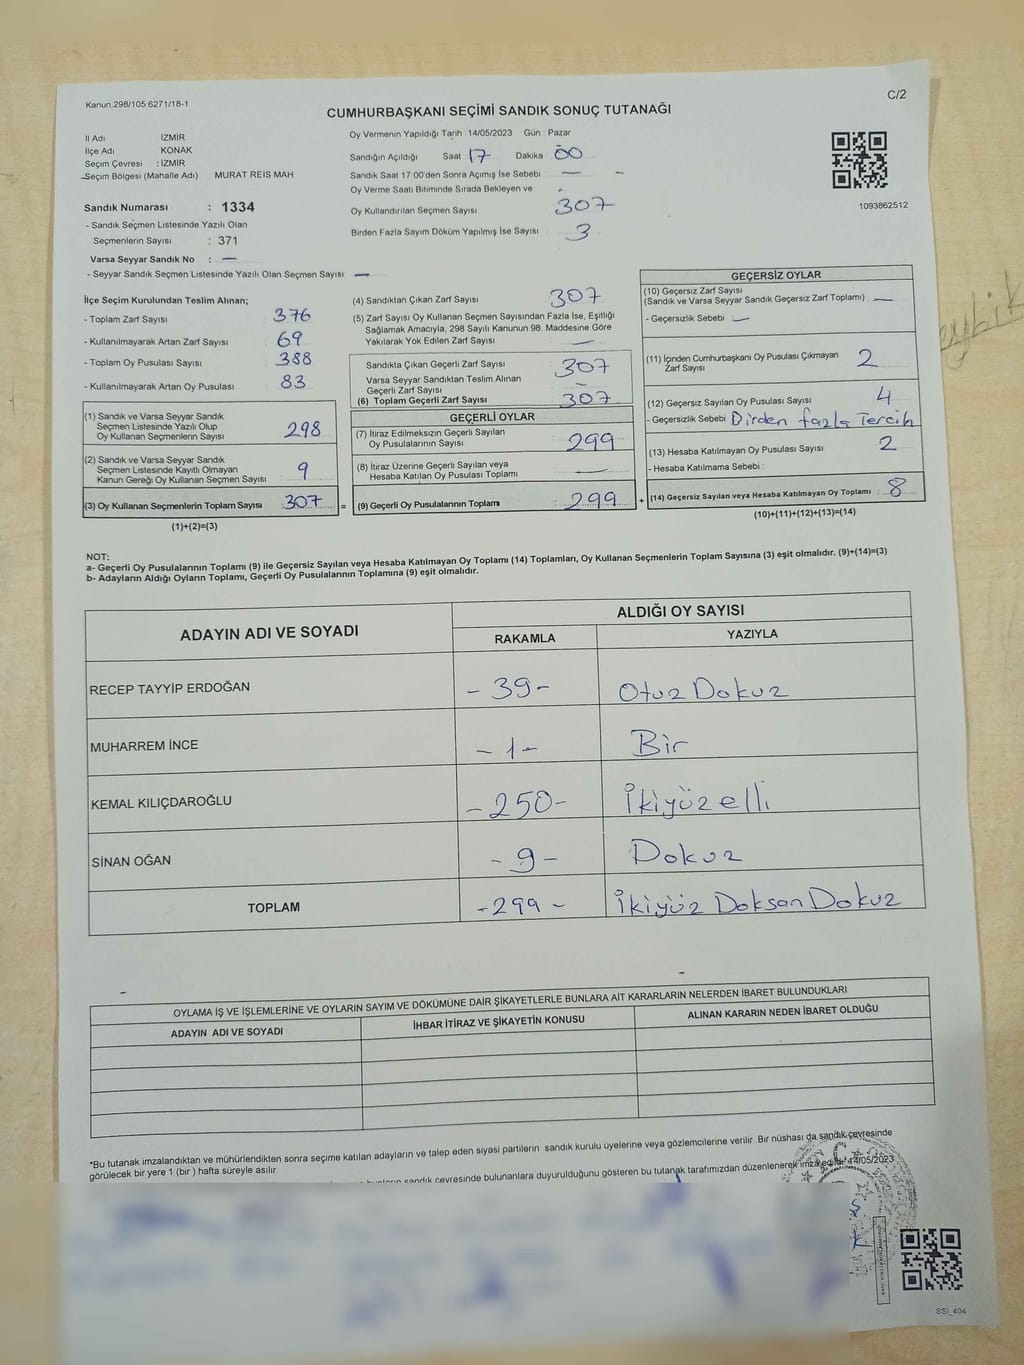 Kanun:298/105 6271/18-1
C/2
CUMHURBAŞKANI SEÇİMİ SANDIK SONUÇ TUTANAĞI
İl Adı İZMİR
İlçe Adı KONAK
Seçim Çevresi : İZMİR
Seçim Bölgesi (Mahalle Adı) MURAT REIS MAH
Sandık Numarası : 1334
- Sandık Seçmen Listesinde Yazılı Olan
Seçmenlerin Sayısı : 371
Varsa Seyyar Sandık No : —
- Seyyar Sandık Seçmen Listesinde Yazılı Olan Seçmen Sayısı : —
Oy Vermenin Yapıldığı Tarih 14/05/2023 Gün : Pazar
Sandığın Açıldığı Saat 17 Dakika 00
Sandık Saat 17.00'den Sonra Açımış İse Sebebi —
Oy Verme Saati Bitiminde Sırada Bekleyen ve
Oy Kullandırılan Seçmen Sayısı 307
Birden Fazla Sayım Döküm Yapılmış İse Sayısı 3
1093862512
İlçe Seçim Kurulundan Teslim Alınan;
- Toplam Zarf Sayısı : 376
- Kullanılmayarak Artan Zarf Sayısı : 69
- Toplam Oy Pusulası Sayısı : 388
- Kullanılmayarak Artan Oy Pusulası : 83
(1) Sandık ve Varsa Seyyar Sandık
Seçmen Listesinde Yazılı Olup
Oy Kullanan Seçmenlerin Sayısı : 298
(2) Sandık ve Varsa Seyyar Sandık
Seçmen Listesinde Kayıtlı Olmayan
Kanun Gereği Oy Kullanan Seçmen Sayısı : 9
(3) Oy Kullanan Seçmenlerin Toplam Sayısı : 307 =
(1)+(2)=(3)
(4) Sandıktan Çıkan Zarf Sayısı : 307
(5) Zarf Sayısı Oy Kullanan Seçmen Sayısından Fazla İse, Eşitliği
Sağlamak Amacıyla, 298 Sayılı Kanunun 98. Maddesine Göre
Yakılarak Yok Edilen Zarf Sayısı : —
Sandıkta Çıkan Geçerli Zarf Sayısı : 307
Varsa Seyyar Sandıktan Teslim Alınan
Geçerli Zarf Sayısı : —
(6) Toplam Geçerli Zarf Sayısı : 307
GEÇERLİ OYLAR
(7) İtiraz Edilmeksizin Geçerli Sayılan
Oy Pusulasının Sayısı : 299
(8) İtiraz Üzerine Geçerli Sayılan veya
Hesaba Katılan Oy Pusulası Toplamı : —
(9) Geçerli Oy Pusulalarının Toplamı : 299 +
GEÇERSİZ OYLAR
(10) Geçersiz Zarf Sayısı
(Sandık ve Varsa Seyyar Sandık Geçersiz Zarf Toplamı) : —
- Geçersizlik Sebebi : —
(11) İçinden Cumhurbaşkanı Oy Pusulası Çıkmayan
Zarf Sayısı : 2
(12) Geçersiz Sayılan Oy Pusulası Sayısı : 4
- Geçersizlik Sebebi : Birden fazla Tercih
(13) Hesaba Katılmayan Oy Pusulası Sayısı : 2
- Hesaba Katılmama Sebebi :
(14) Geçersiz Sayılan veya Hesaba Katılmayan Oy Toplamı : 8
(10)+(11)+(12)+(13)=(14)
NOT:
a- Geçerli Oy Pusulalarının Toplamı (9) ile Geçersiz Sayılan veya Hesaba Katılmayan Oy Toplamı (14) Toplamları, Oy Kullanan Seçmenlerin Toplam Sayısına (3) eşit olmalıdır. (9)+(14)=(3)
b- Adayların Aldığı Oyların Toplamı, Geçerli Oy Pusulalarının Toplamına (9) eşit olmalıdır.
ADAYIN ADI VE SOYADI
ALDIĞI OY SAYISI
RAKAMLA YAZIYLA
RECEP TAYYİP ERDOĞAN - 39 - Otuz Dokuz
MUHARREM İNCE - 1 - Bir
KEMAL KILIÇDAROĞLU - 250 - İkiyüz elli
SİNAN OĞAN - 9 - Dokuz
TOPLAM - 299 - İkiyüz Doksan Dokuz
OYLAMA İŞ VE İŞLEMLERİNE VE OYLARIN SAYIM VE DÖKÜMÜNE DAİR ŞİKAYETLERLE BUNLARA AİT KARARLARIN NELERDEN İBARET BULUNDUKLARI
ADAYIN ADI VE SOYADI İHBAR İTİRAZ VE ŞİKAYETİN KONUSU ALINAN KARARIN NEDEN İBARET OLDUĞU
*Bu tutanak imzalandıktan ve mühürlendikten sonra seçime katılan adayların ve talep eden siyasi partilerin sandık kurulu üyelerine veya gözlemcilerine verilir. Bir nüshası da sandık çevresinde
görülecek bir yere 1 (bir) hafta süreyle asılır.
sandık çevresinde bulunanlara duyurulduğunu gösteren bu tutanak tarafımızdan düzenlenerek imza edildi. 14/05/2023
SSI_404